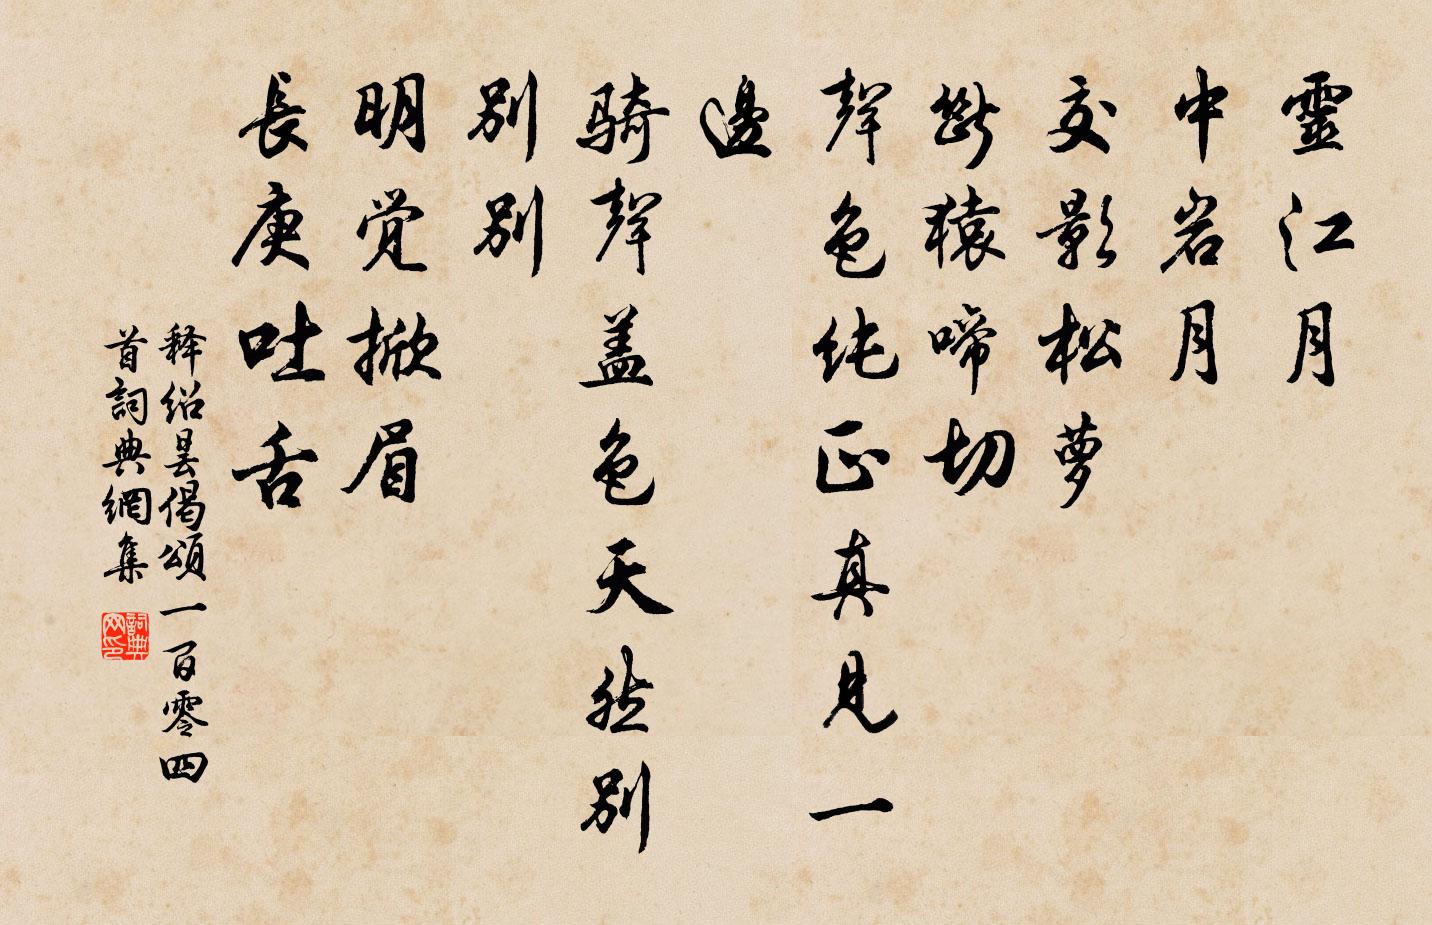 靈江月
中岩月
交影松萝
断猿啼切
聲色純正真見一
邊
騎聲盖色天然别
别别
明觉掀眉
長庚吐舌
释绍昙偈頌一百零四
首詞典網集
詞典网印